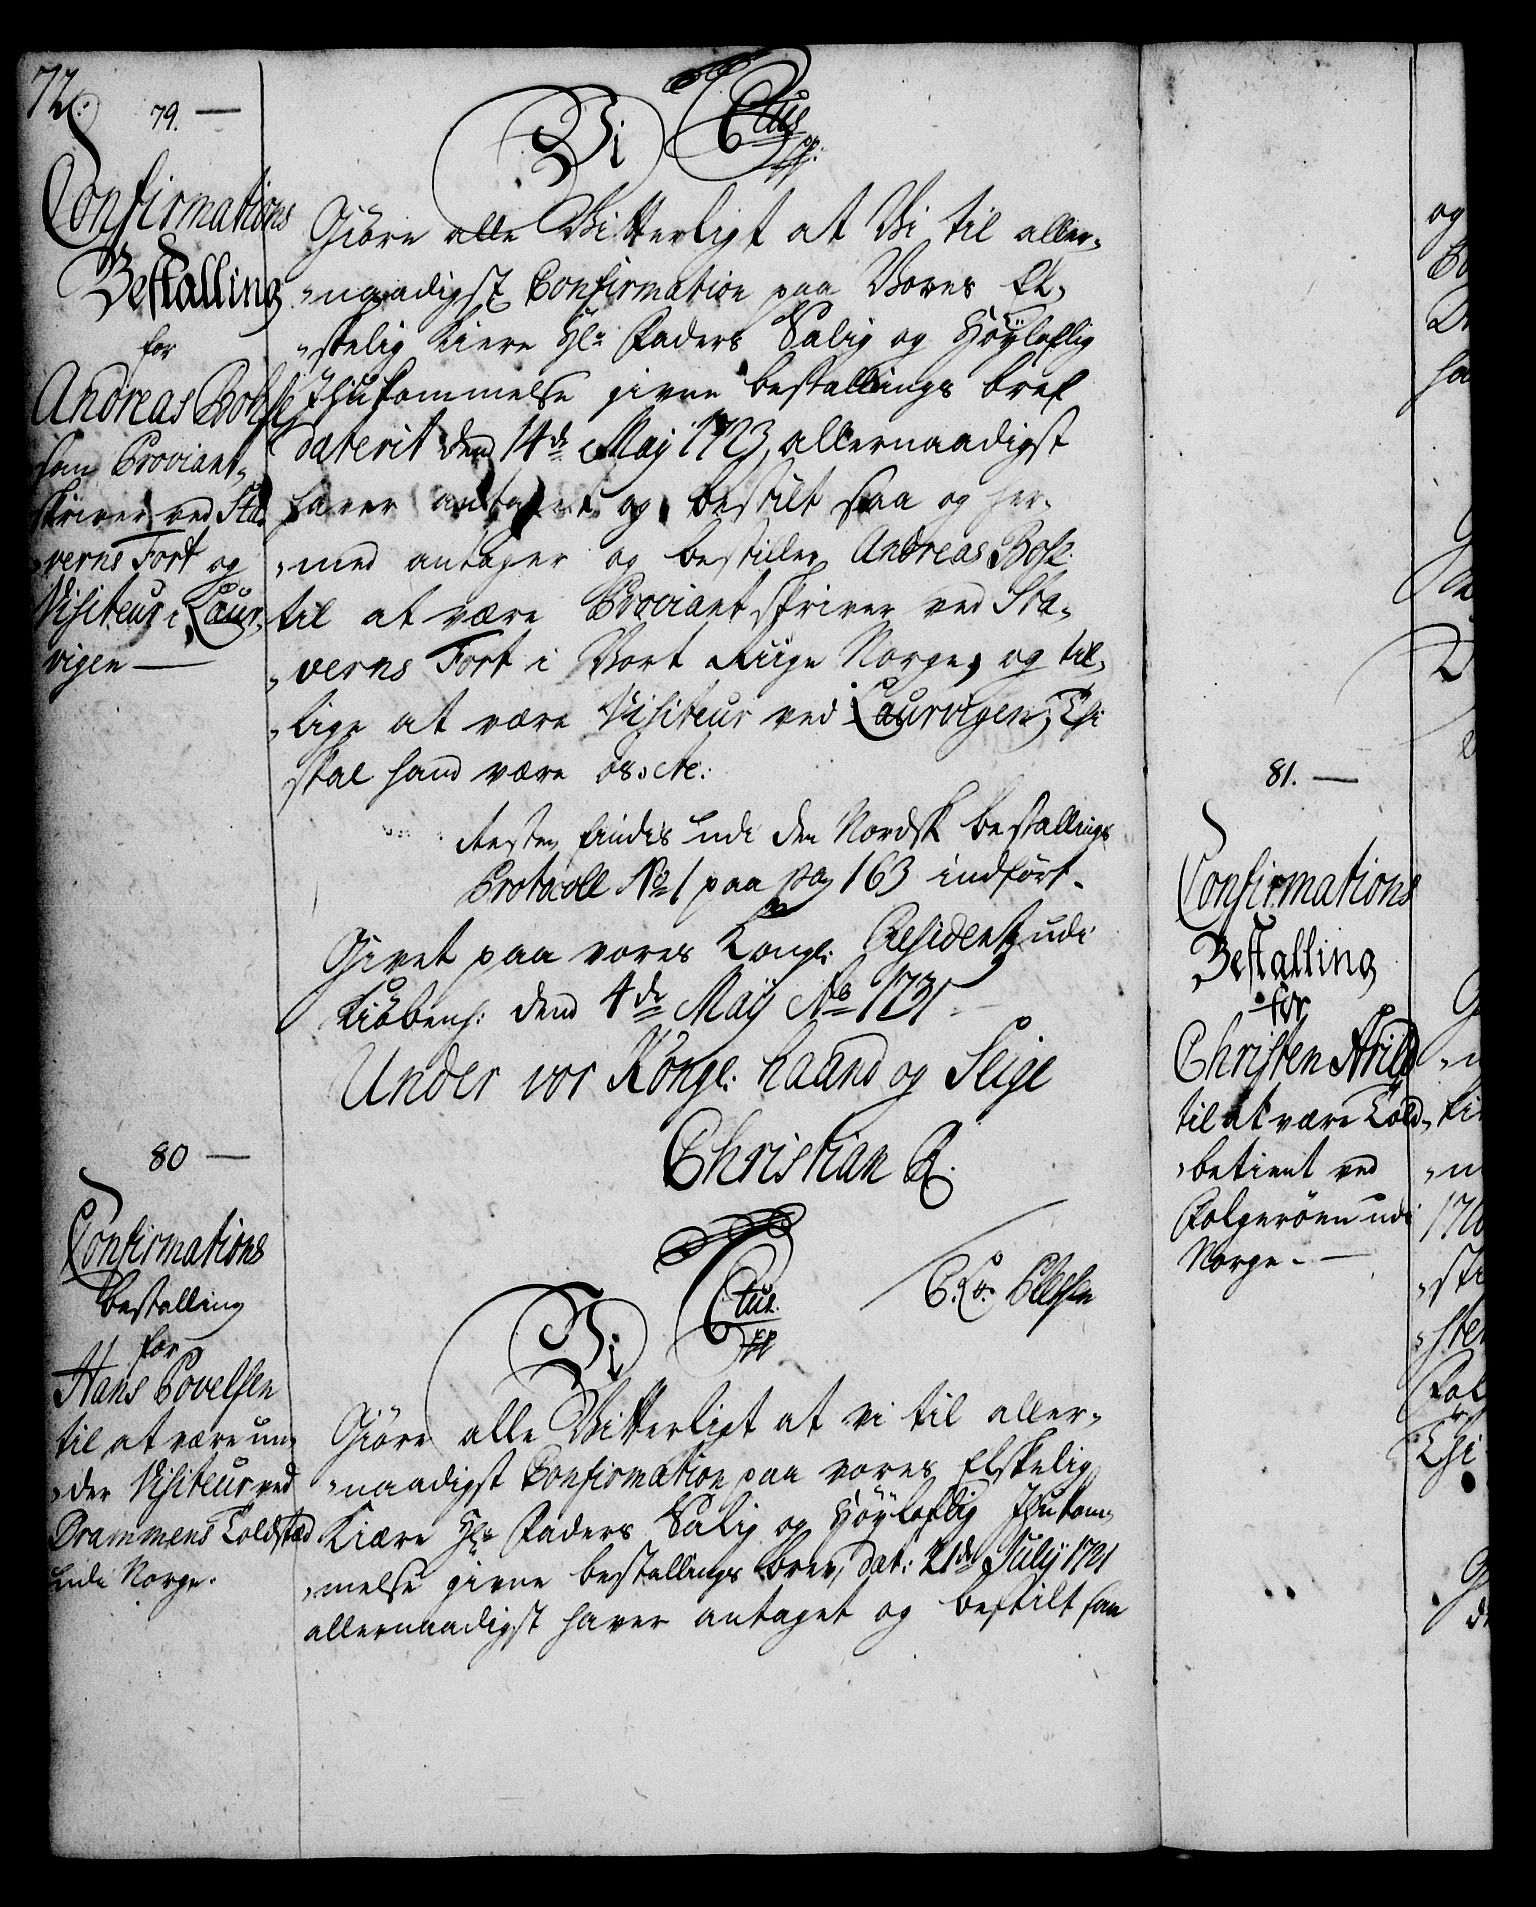 72.
79. —
Confirmations
Bestalling
for
Andreas Bohse
som Proviant-
skriver ved Sta-
verns Fort og
Visiteur i Laur-
vigen —
Vi Ctus
pp:
Giöre alle Vitterligt at Vi til aller-
naadigst Confirmation paa Vores El-
skelig Kiere Hr Faders Salig og Höÿloflig
Ihukommelse givne bestallings bref
daterit den 14de Maj 1723, allernaadigst
haver antaget og bestilt saa og her-
med antager og bestiller Andreas Bohse
til at være Proviantskriver ved Sta-
verns Fort i Vort Riige Norge, og til-
lige at være Visiteur ved Laurvigen; Thi
skal hand være os. etc:
Resten findis udi den Nordsk bestallings
Protocoll No 1 paa pag 163 indfört.
Givet paa vores Kongl: Residentz udi
Kiöbenh: dend 4de Maÿ Ao 1731.
Under vor Kongl: haand og Seigl
Christian R.
80 —
Confirmations
bestalling
for
Hans Povelsen
til at være un-
der Visiteur ved
Drammens Toldsted
udi Norge.
Vi Ctus.
pp
Giöre alle Vitterligt at vi til aller-
naadigst Confirmation paa vores Elskelig
Kiære Hr Faders Salig og Höÿloflig Ihukom-
melse givne bestallings brev, dat: 21de Julÿ 1721
allernaadigst haver antaget og bestilt saa
81. —
Confirmations
Bestalling
for
Christen Arild
til at være Told-
betient ved
Folgeröen udi
Norge. —
og